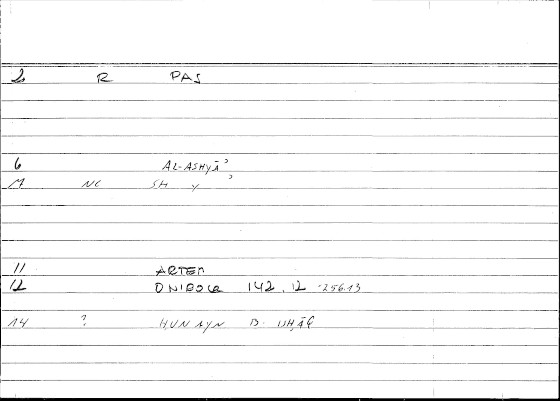 2 R PAS
6 AL-ASHYĀʾ
M NC SH Y ʾ
11 ARTEM
12 ONIROCR 142.12 -256.13
14 ? HUNAYN B. ISḤĀQ